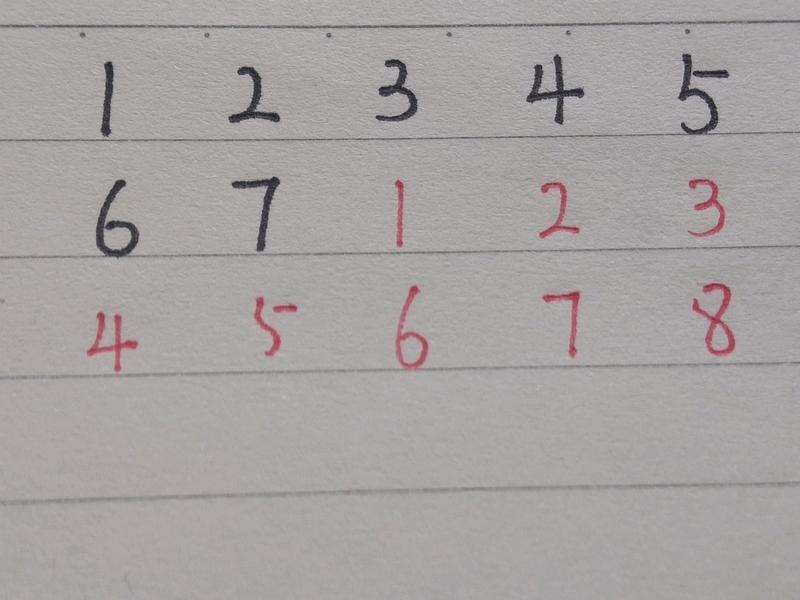 1 2 3 4 5
6 7 1 2 3
4 5 6 7 8